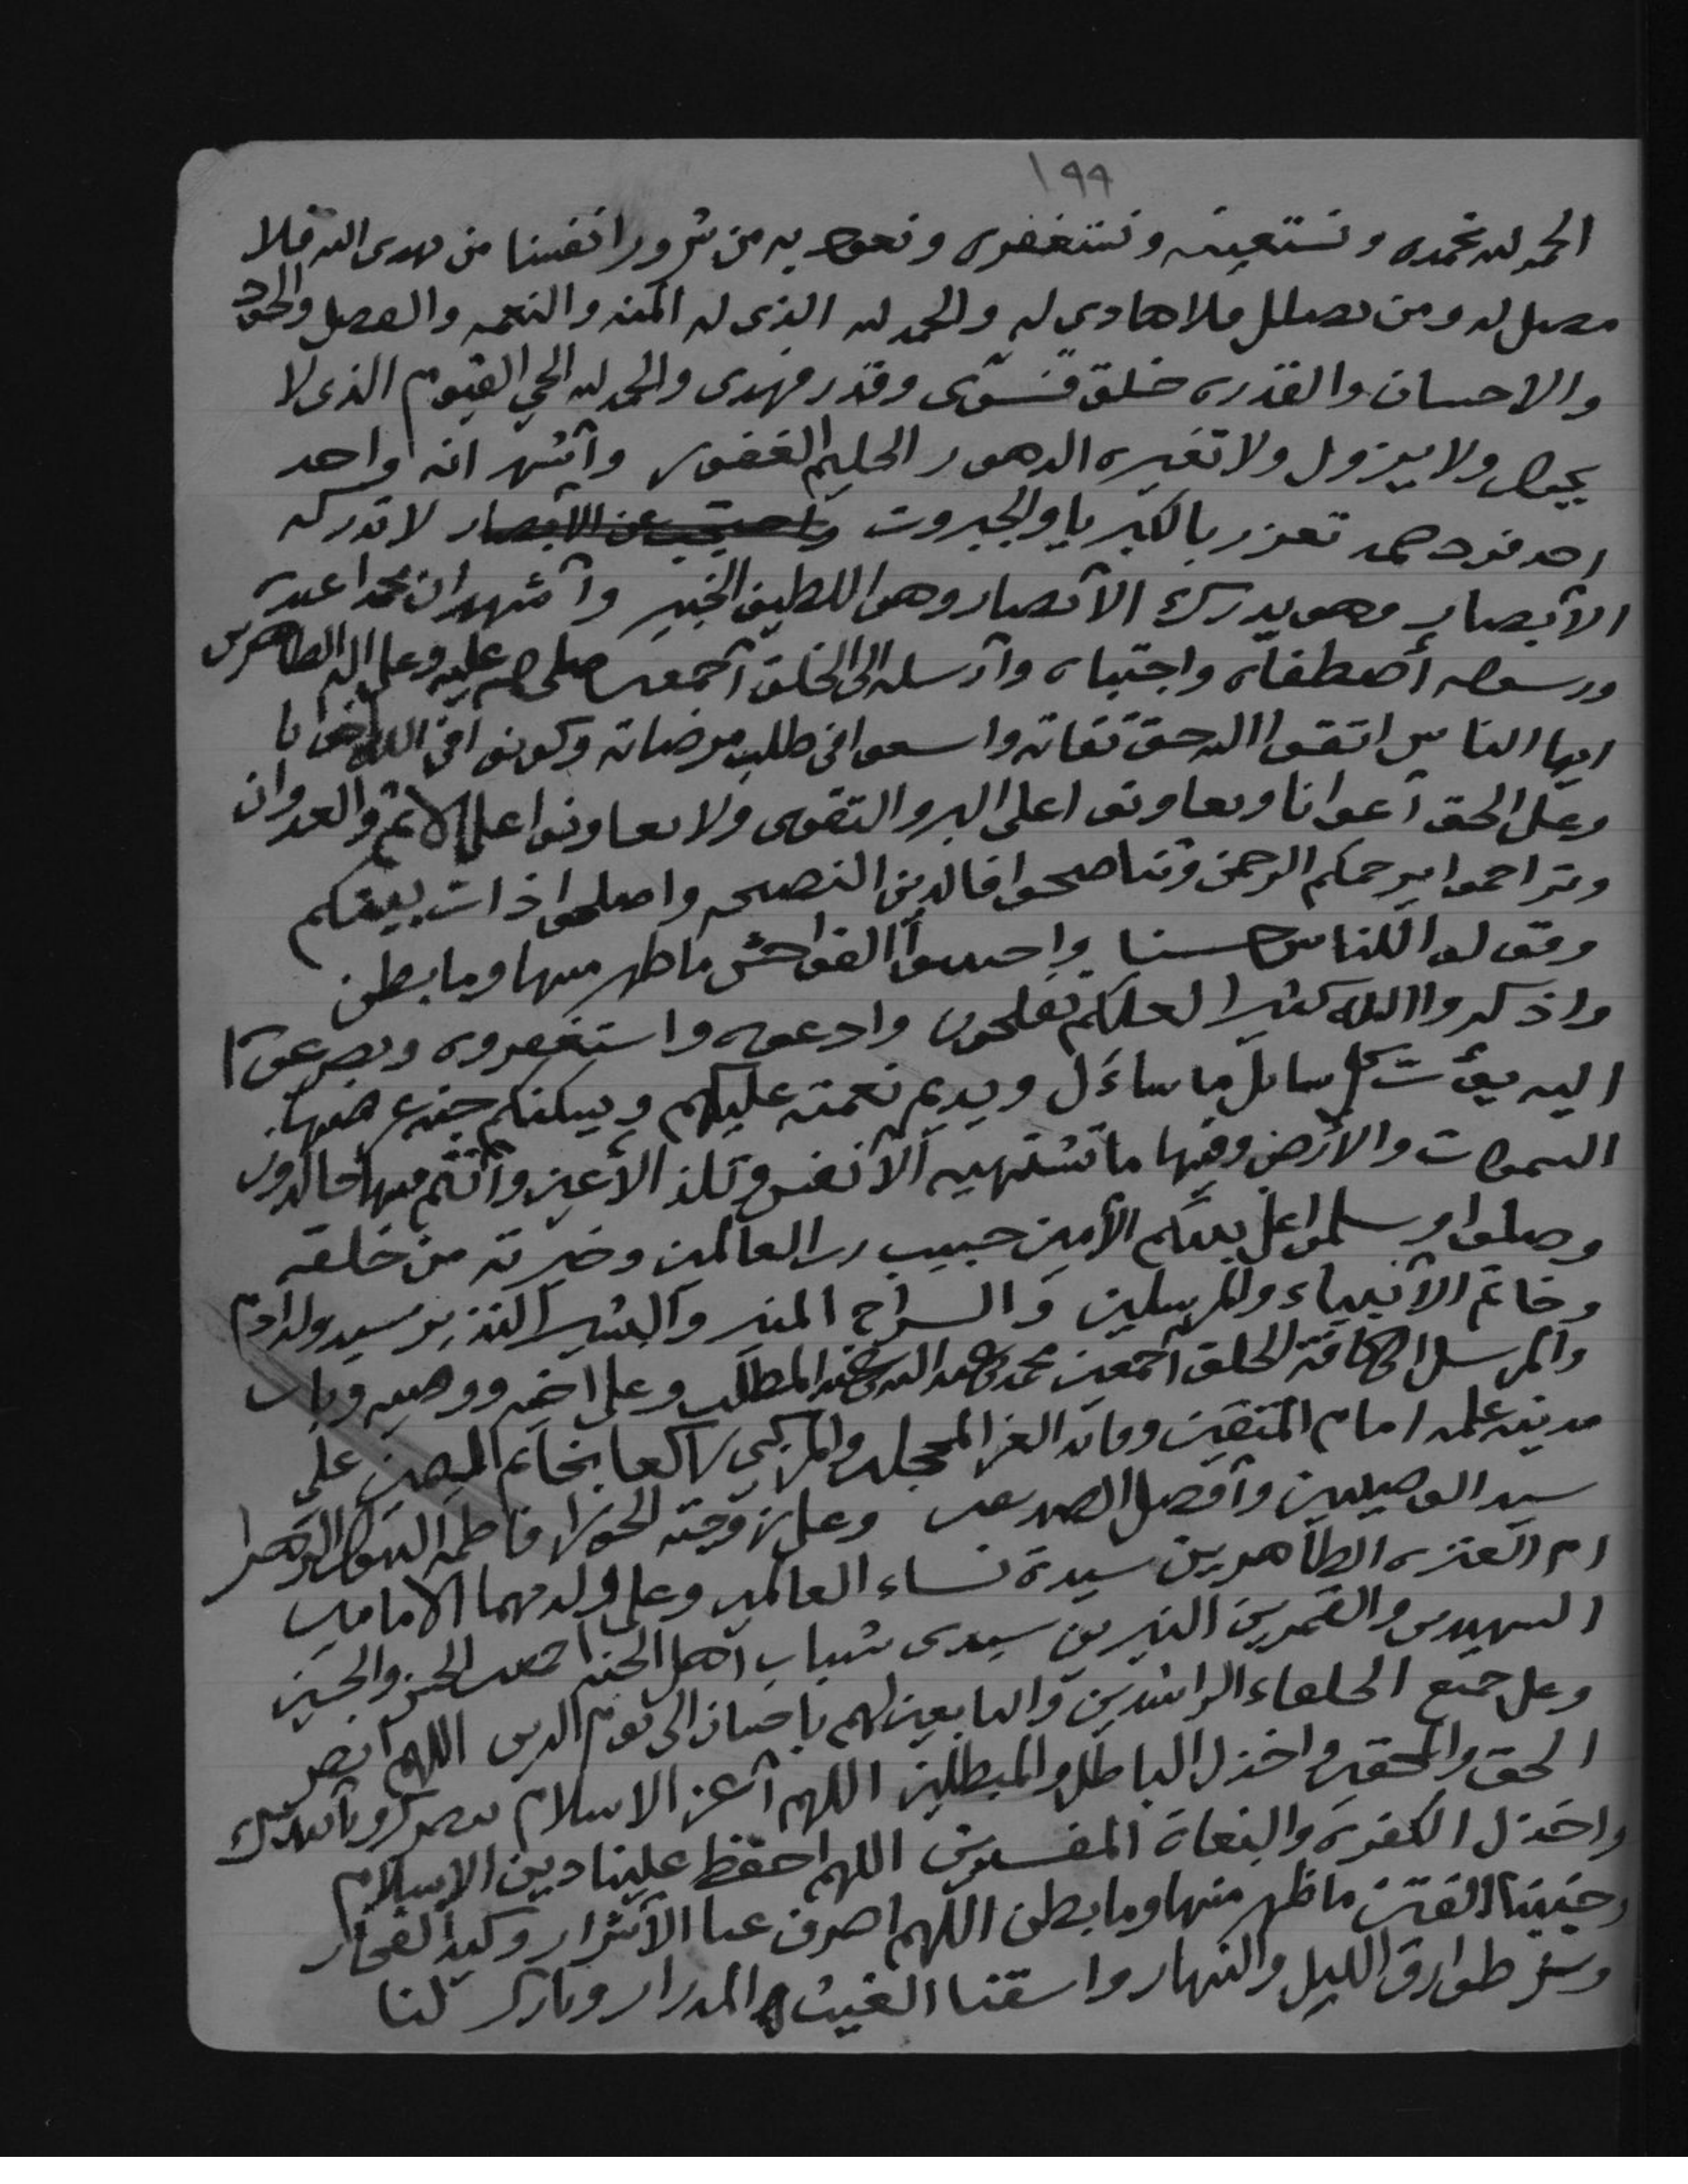 ١٩٩
الحمد لله نحمده ونستعينه ونستغفره ونعوذ به من شرور انفسنا من يهدى الله فلا
مضل له ومن يضلل فلا هادى له والحمد لله الذى له المنه والنعمه والفضل والجود
والاحسان والقدره خلق فسوّى وقدر فهدى والحمد لله الحي القيوم الذى لا
يحول ولا يزول ولا تغيره الدهور الحليم الغفور وأشهد انه واحد
احد فرد صمد تعزز بالكبريا والجبروت واحتجب عن الابصار لا تدركه
الأبصار وهو يدرك الأبصار وهو اللطيف الخبير وأشهد ان محمدا عبده
ورسوله أصطفاه واجتباه وأرسله الى الخلق أجمعين صلى الله عليه وعلى اله الطاهرين
ايها الناس اتقوا الله حق تقاته واسعوا في طلب مرضاته وكونوا في الله اخوانا
وعلى الحق أعوانا وتعاونوا على البر والتقوى ولا تعاونوا على الاثم والعدوان
وتراحموا يرحمكم الرحمن وتناصحوا فالدين النصيحه واصلحوا ذات بينكم
وقولوا للناس حسنا واجتنبوا الفواحش ما ظهر منها وما بطن
واذكروا الله كثيرا لعلكم تفلحون وادعوه واستغفروه وتضرعوا
اليه يؤت كل سائل ما سأل ويديم نعمته عليكم ويسكنكم جنه عرضها
السموات والأرض وفيها ما تشتهيه الأنفس وتلذ الأعين وأنتم فيها خالدون
وصلوا وسلموا على نبيكم الأمين حبيب رب العالمين وخيرته من خلقه
وخاتم الأنبياء والمرسلين والسراج المنير والبشير النذير سيد ولد ادم
والمرسل الى كافة الخلق أجمعين محمد بن عبد الله بن عبد المطلب وعلى اخيه ووصيه وباب
مدينه علمه امام المتقين وقائد الغر المحجلين والمزكي راكعا بخاتم اليمين علي
سيد الوصيين وأفضل الصديقين وعلى زوجته الحورا فاطمه البتول الزهرا
ام العتره الطاهرين سيدة نساء العالمين وعلى ولديهما الامامين
الشهيدين والقمرين النيرين سيدى شباب أهل الجنه اجمعين الحسن والحسين
وعلى جميع الخلفاء الراشدين والتابعين لهم باحسان الى يوم الدين اللهم انصر
الحق والمحقين واخذل الباطل والمبطلين اللهم أعز الاسلام بنصرك وتأييدك
واخذل الكفره والبغاة المفسدين اللهم احفظ علينا دين الاسلام
وجنبنا الفتن ما ظهر منها وما بطن اللهم اصرف عنا الأشرار وكيد الفجار
وشر طوارق الليل والنهار واسقنا الغيث المدرار وبارك لنا